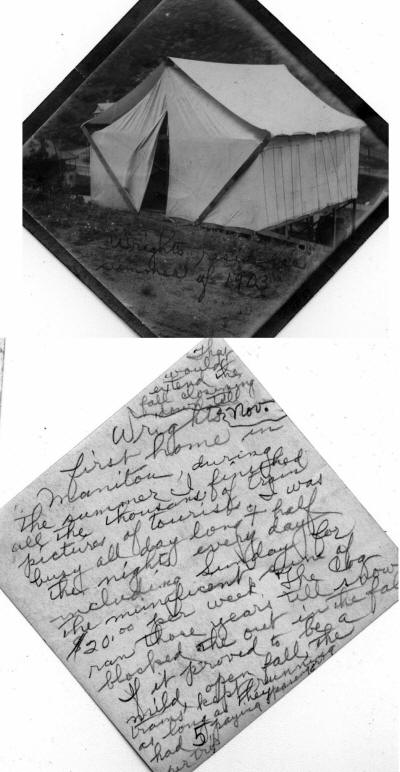 Wrights
summer of 1903
That
would
extend the
fall
until
Wrights Nov.
first home in
Manitou, during
the summer I finished
all the thousands of train
pictures of tourists & I was
busy all day long & half
the nights every day
including Sunday for
the magnificent sum of
$20.00 per week. The Cog
ran those years till snow
blocked the out in the fall
If it proved to be a
mild, open fall, the
trains kept running
as long as they
had paying
per trip
5